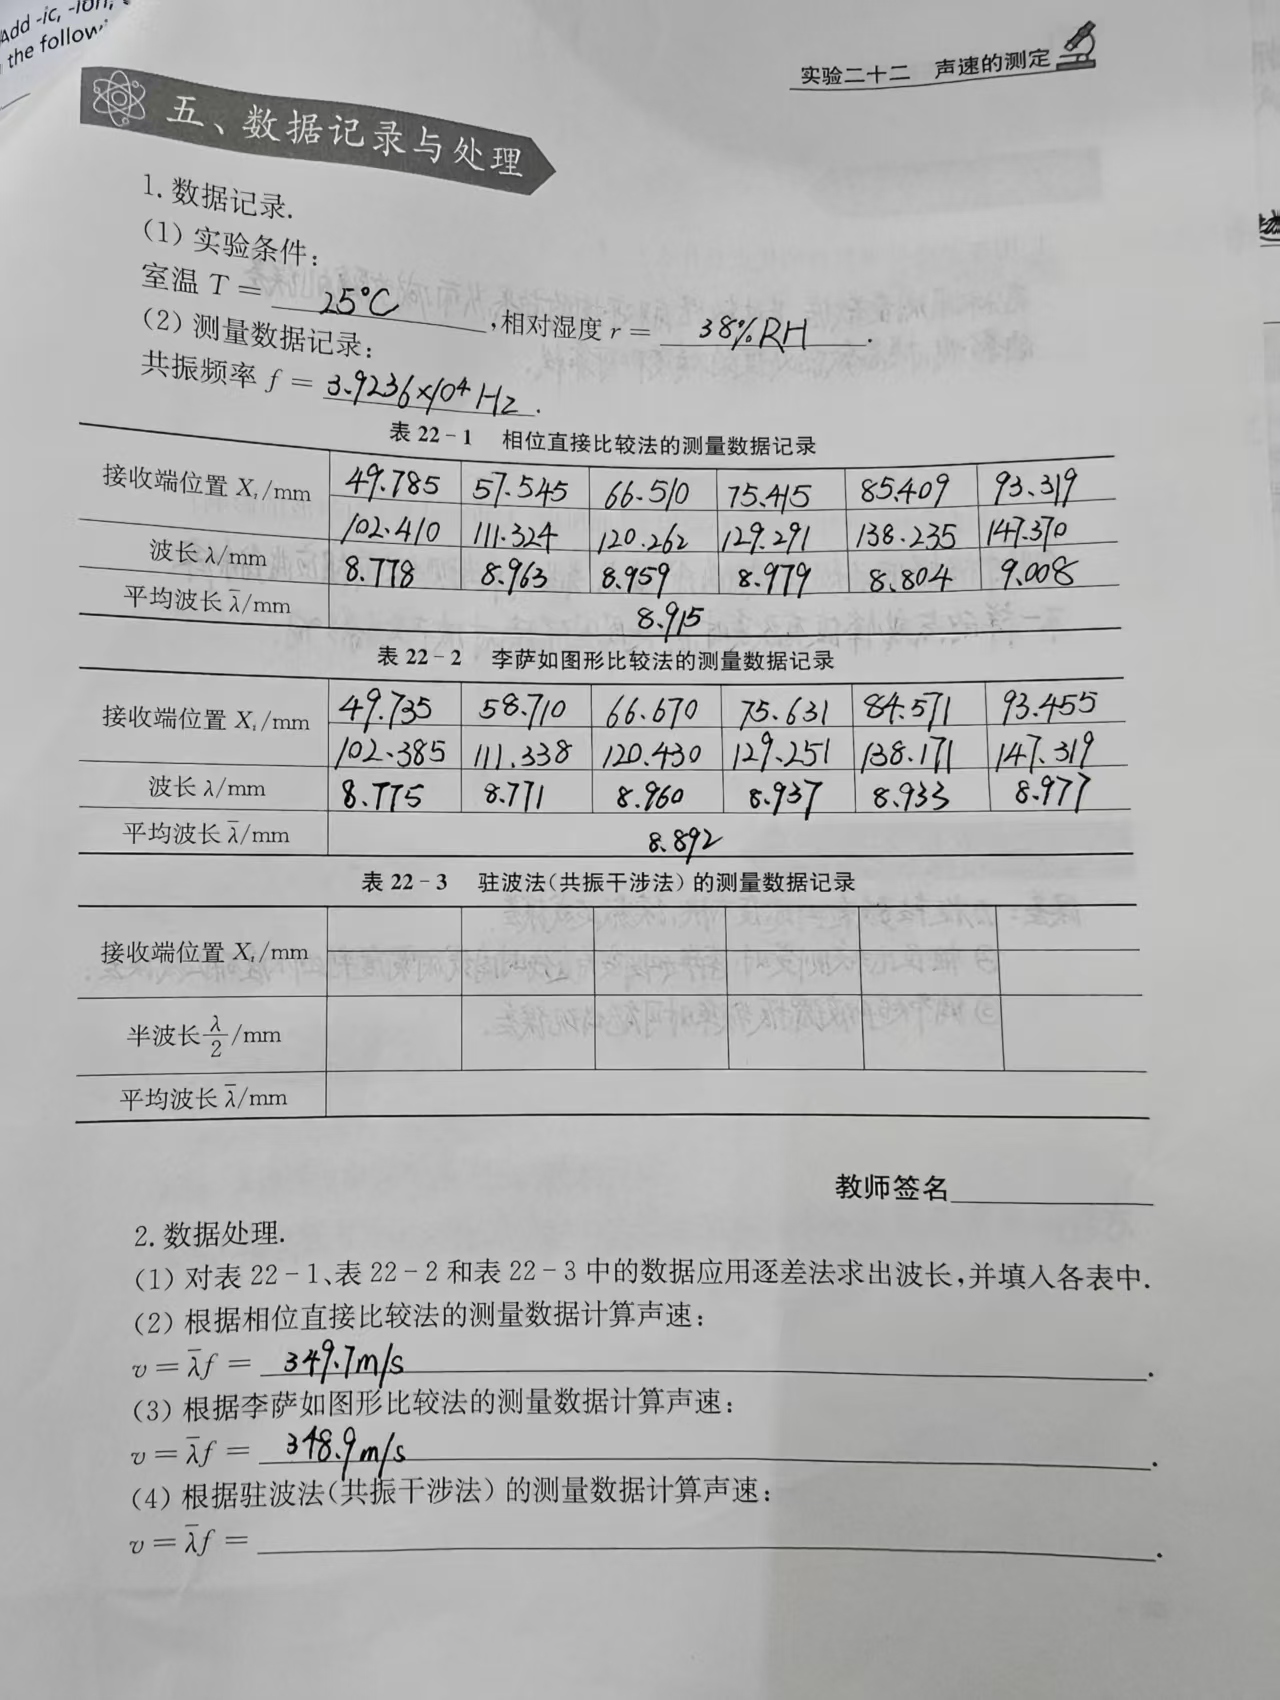 Add -ic, -ion,
the follow
实验二十二 声速的测定
五、数据记录与处理
1. 数据记录.
(1) 实验条件:
室温 T = 25°C ,相对湿度 r = 38%RH .
(2) 测量数据记录:
共振频率 f = 3.9236×10⁴ Hz .
表 22-1 相位直接比较法的测量数据记录
接收端位置 Xᵢ/mm 49.785 57.545 66.510 75.415 85.409 93.319
102.410 111.324 120.262 129.291 138.235 147.370
波长 λ/mm 8.778 8.963 8.959 8.979 8.804 9.008
平均波长 λ̄/mm 8.915
表 22-2 李萨如图形比较法的测量数据记录
接收端位置 Xᵢ/mm 49.735 58.710 66.670 75.631 84.571 93.455
102.385 111.338 120.430 129.251 138.171 147.319
波长 λ/mm 8.775 8.771 8.960 8.937 8.933 8.977
平均波长 λ̄/mm 8.892
表 22-3 驻波法(共振干涉法)的测量数据记录
接收端位置 Xᵢ/mm
半波长 λ/2 /mm
平均波长 λ̄/mm
教师签名
2. 数据处理.
(1) 对表 22-1、表 22-2 和表 22-3 中的数据应用逐差法求出波长,并填入各表中.
(2) 根据相位直接比较法的测量数据计算声速:
v = λ̄f = 349.7m/s .
(3) 根据李萨如图形比较法的测量数据计算声速:
v = λ̄f = 348.9m/s .
(4) 根据驻波法(共振干涉法)的测量数据计算声速:
v = λ̄f = .